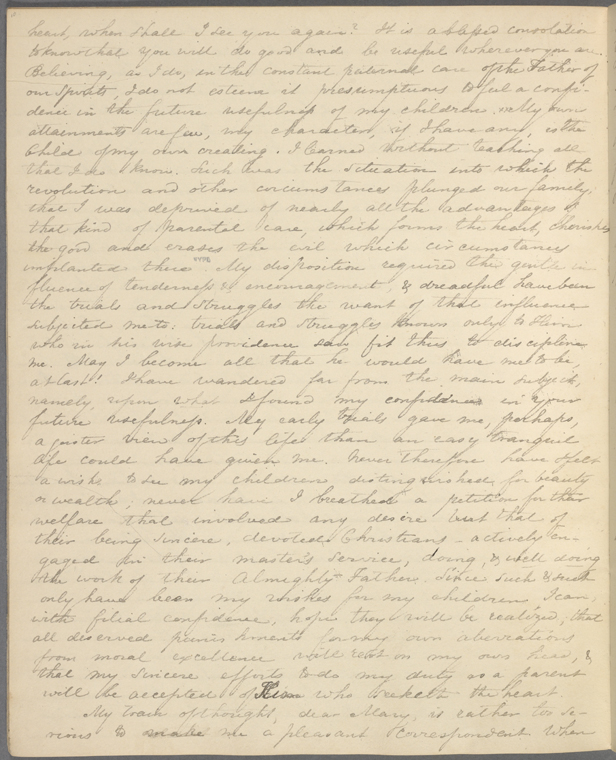 heart, when shall I see you again? It is a blessed consolation
to know that you will do good and be useful wherever you are.
Believing, as I do, in the constant paternal care of the Father of
our Spirits, I do not esteem it presumptuous to feel a confi-
dence in the future usefulness of my children. My own
attainments are few, my character, if I have any, is the
Child of my own creating. I learned without teaching all
that I do know. Such was the situation into which the
revolution and other circumstances plunged our family,
that I was deprived of nearly all the advantages of
that kind of parental care, which forms the heart, cherishes
the good and erases the evil which circumstances
implanted there. My disposition required the gentle in-
fluence of tenderness & encouragement, & dreadful have been
the trials and struggles the want of that influence
subjected me to: trials and struggles known only to Him
who in his wise providence saw fit thus to discipline
me. May I become all that he would have me to be,
at last! I have wandered far from the main subject,
namely, upon what I found my confidence in your
future usefulness. My early trials gave me, perhaps,
a juster view of this life than an easy tranquil
life could have given me. Never therefore have I felt
a wish to see my children distinguished for beauty
or wealth; never have I breathed a petition for their
welfare that involved any desire but that of
their being sincere, devoted Christians – actively en-
gaged in their master's service, doing, & well doing
the work of their Almighty Father. Since such & such
only have been my wishes for my children I can,
with filial confidence, hope they will be realized, that
all deserved punishments for my own aberrations
from moral excellence will rest on my own head, &
that my sincere efforts to do my duty as a parent
will be accepted of Him who seeketh the heart.
My train of thought, dear Mary, is rather too se-
rious to make me a pleasant correspondent when